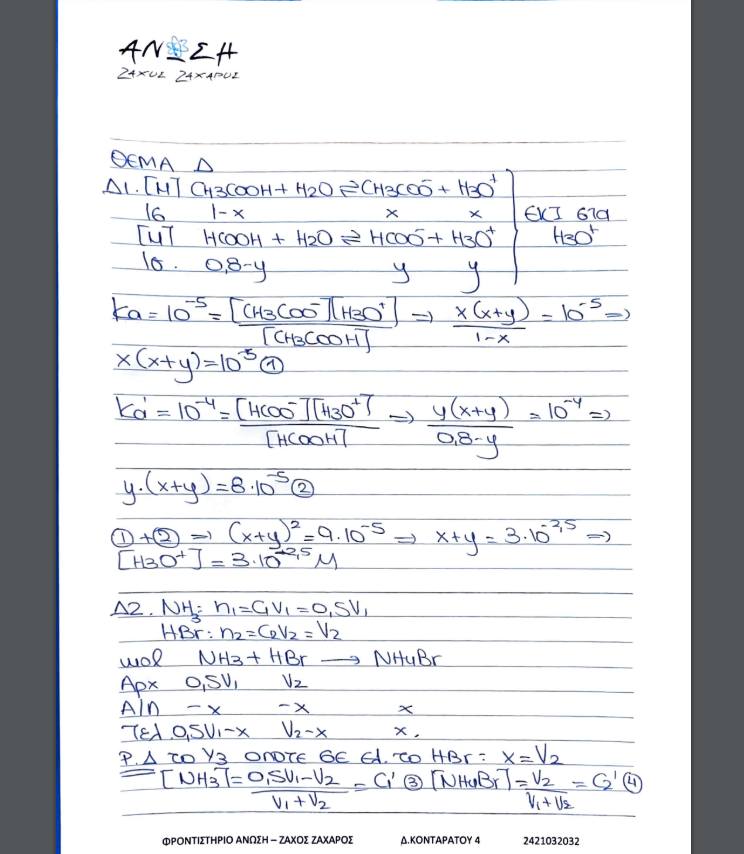 ΑΝΩΣΗ
ΖΑΧΟΣ ΖΑΧΑΡΟΣ
ΘΕΜΑ Δ
Δ1. [M] CH3COOH + H2O ⇌ CH3COO⁻ + H3O⁺
ισ 1-x x x ΕΚΙ στα
[M] HCOOH + H2O ⇌ HCOO⁻ + H3O⁺ H3O⁺
ισ. 0,8-y y y
Ka = 10⁻⁵ = [CH3COO⁻][H3O⁺] / [CH3COOH] ⇒ x(x+y) / 1-x = 10⁻⁵ ⇒
x(x+y) = 10⁻⁵ ①
Ka' = 10⁻⁴ = [HCOO⁻][H3O⁺] / [HCOOH] ⇒ y(x+y) / 0,8-y = 10⁻⁴ ⇒
y.(x+y) = 8.10⁻⁵ ②
① + ② ⇒ (x+y)² = 9.10⁻⁵ ⇒ x+y = 3.10⁻²,⁵ ⇒
[H3O⁺] = 3.10⁻²,⁵ M
Δ2. NH3: n1 = C1V1 = 0,5V1
HBr: n2 = C2V2 = V2
mol NH3 + HBr → NH4Br
Αρχ 0,5V1 V2
Α/Π -x -x x
Τελ 0,5V1-x V2-x x.
Ρ.Δ το Υ3 οποτε σε ελ. το HBr: x = V2
[NH3] = 0,5V1-V2 / V1+V2 = C1' ③ [NH4Br] = V2 / V1+V2 = C2' ④
ΦΡΟΝΤΙΣΤΗΡΙΟ ΑΝΩΣΗ – ΖΑΧΟΣ ΖΑΧΑΡΟΣ Δ.ΚΟΝΤΑΡΑΤΟΥ 4 2421032032